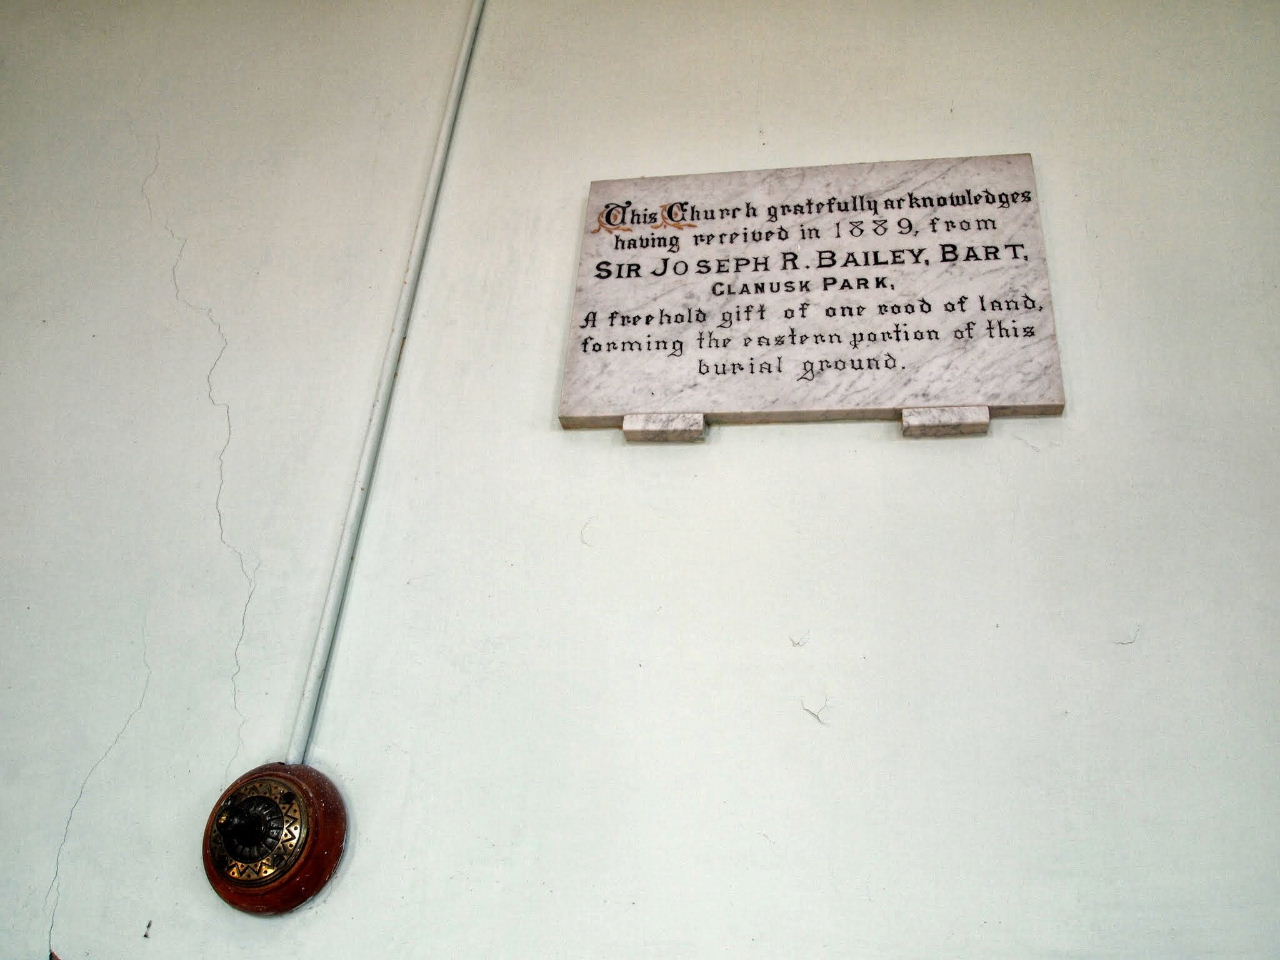 This Church gratefully acknowledges
having received in 1889, from
SIR JOSEPH R. BAILEY, BART,
CLANUSK PARK,
A freehold gift of one rood of land,
forming the eastern portion of this
burial ground.